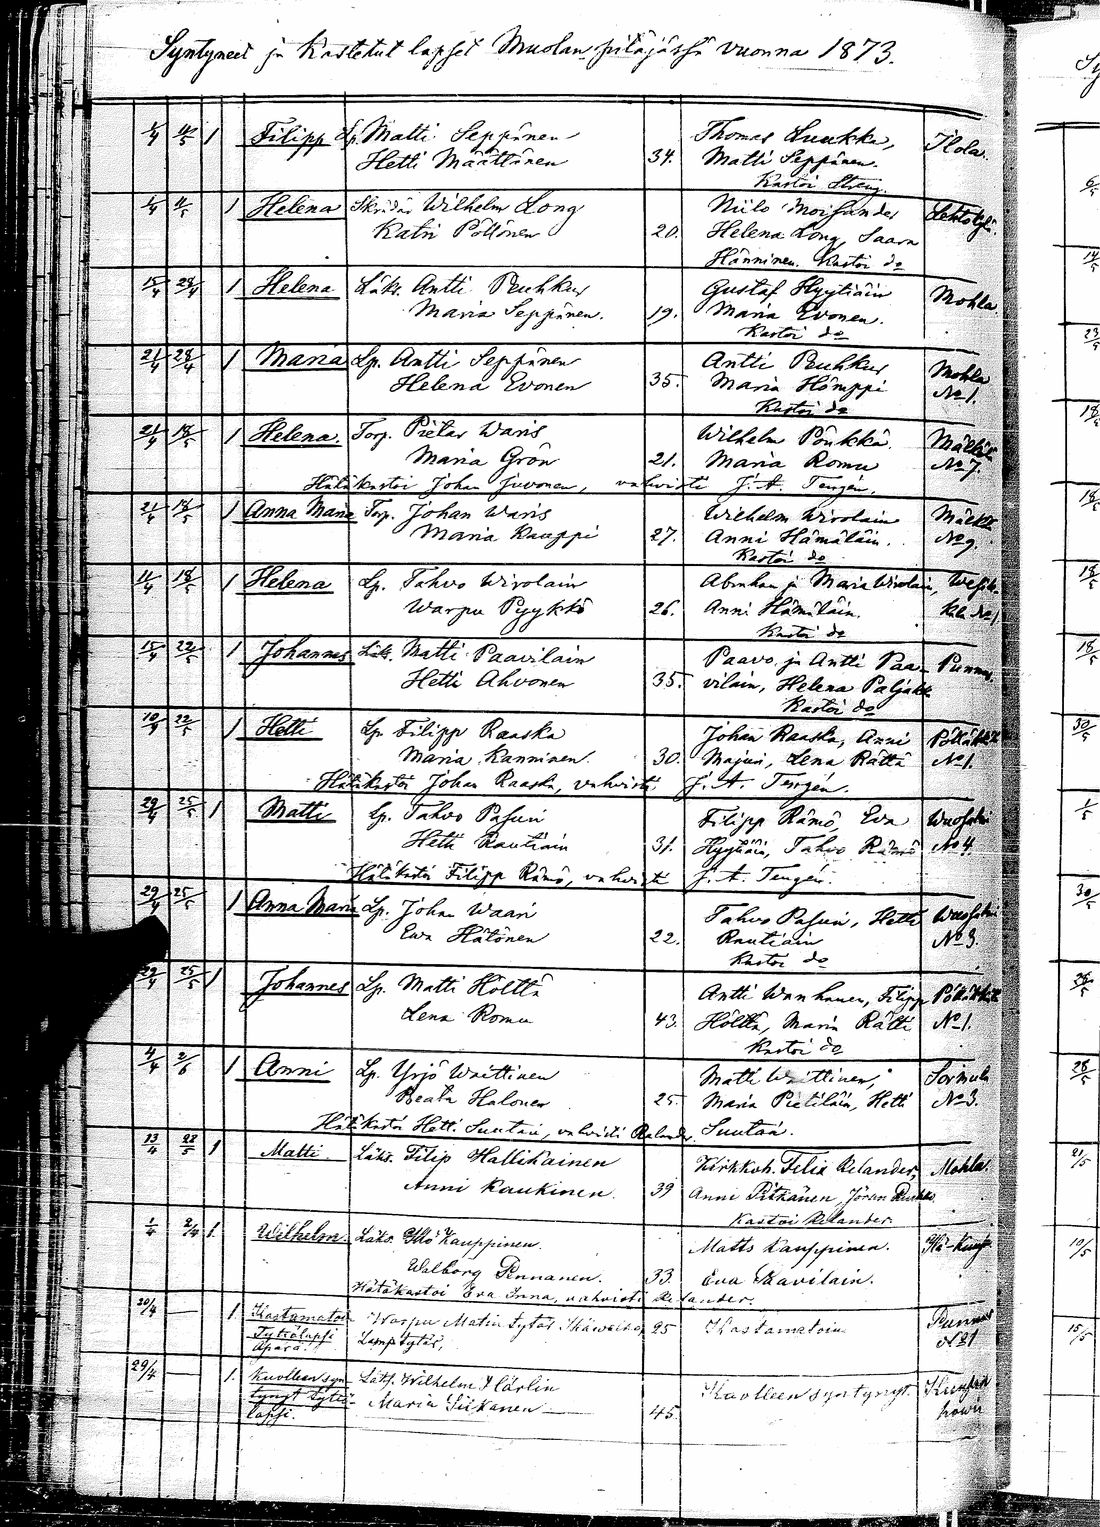 Syntyneet ja Kastetut lapset Muolan pitäjässä vuonna 1873.
1/4 11/5 1 Filipp Lp. Matti Seppänen Thomas Luukka, Ilola.
Hetti Määttönen 34. Matti Seppänen.
Kastoi Streng.
1/4 11/5 1 Helena Wilhelm Long Niilo Moisander
Katri Pöllönen 20. Helena Long, Saara
Hänninen. Kastoi do
15/4 28/4 1 Helena Läks. Antti Peuhkur Gustaf Hyytiäin Mohla.
Maria Seppänen. 19. Maria Evonen.
Kastoi do
21/4 28/4 1 Maria Lp. Antti Seppänen Antti Peuhkur Mohla
Helena Evonen 35. Maria Hömppi No 1.
Kastoi do
21/4 18/5 1 Helena. Torp. Pietar Waris Wilhelm Pönkkä.
Maria Grön 21. Maria Romu No 7.
Hätäkastoi Johan Juvonen, vahvisti J. A. Tengén.
21/4 18/5 1 Anna Maria Torp. Johan Waris Wilhelm Wirolain
Maria Kauppi 27. Anni Hämäläin. No 9.
Kastoi do
11/4 18/5 1 Helena Lp. Tahvo Wirolain Abraham ja Maria Wirolain,
Warpu Pyykkö 26. Anni Hämäläin.
Kastoi do
15/4 22/5 1 Johannes Läks. Matti Paavilain Paavo ja Antti Paa- Punnus.
Hetti Ahvonen 35. vilain, Helena Paljakk
Kastoi do
10/4 22/5 1 Hetti Lp Filipp Raaska Johan Raaska, Anni
Maria Kanninen. 30. Majuri, Lena Rättö No 1.
Hätäkastoi Johan Raaska, vahvisti J. A. Tengén.
29/4 25/5 1 Matti Lp. Tahvo Pasuri Filipp Rämö, Eva
Hetti Rautiain 31. Hyytiäin, Tahvo Rämö No 4.
Hätäkastoi Filipp Rämö, vahvisti J. A. Tengén.
29/4 25/5 1 Anna Maria Lp. Johan Waari Tahvo Pasuri, Hetti
Ewa Hätönen 22. Rautiain No 3.
Kastoi do
29/4 25/5 1 Johannes Lp. Matti Hölttä Antti Wanhanen, Filipp
Lena Romu 43. Höltta, Maria Rätti No 1.
Kastoi do
4/4 2/6 1 Anni Lp. Yrjö Waittinen Matti Waittinen, Sormula
Beata Halonen 25. Maria Pietiläin, Hetti No 3.
Hätäkastoi Hetti Suutari, vahvisti Relander. Suutari.
13/4 22/5 1 Matti. Läks. Filip Hallikainen Kirkkoh. Felix Relander, Mohla.
Anni Kaukinen. 39 Anni Pitkänen, Jöran
Kastoi Relander.
1/4 2/4 1. Wilhelm. Läks. Kauppinen. Matts Kauppinen.
Walborg Pennanen. 33. Eva Paavilain.
Hätäkastoi Eva Inna, vahvisti Relander.
20/4 — 1. Kastamatoin Warpu Matin Tytär 25 Kastamatoin Punnus
Tyttölapsi No 1
Äpärä.
29/4 — 1. Kuolleen syn- Läks. Wilhelm Härlin Kuolleen syntynyt.
tynyt Tyttö- Maria Siikanen
lapsi. 45.